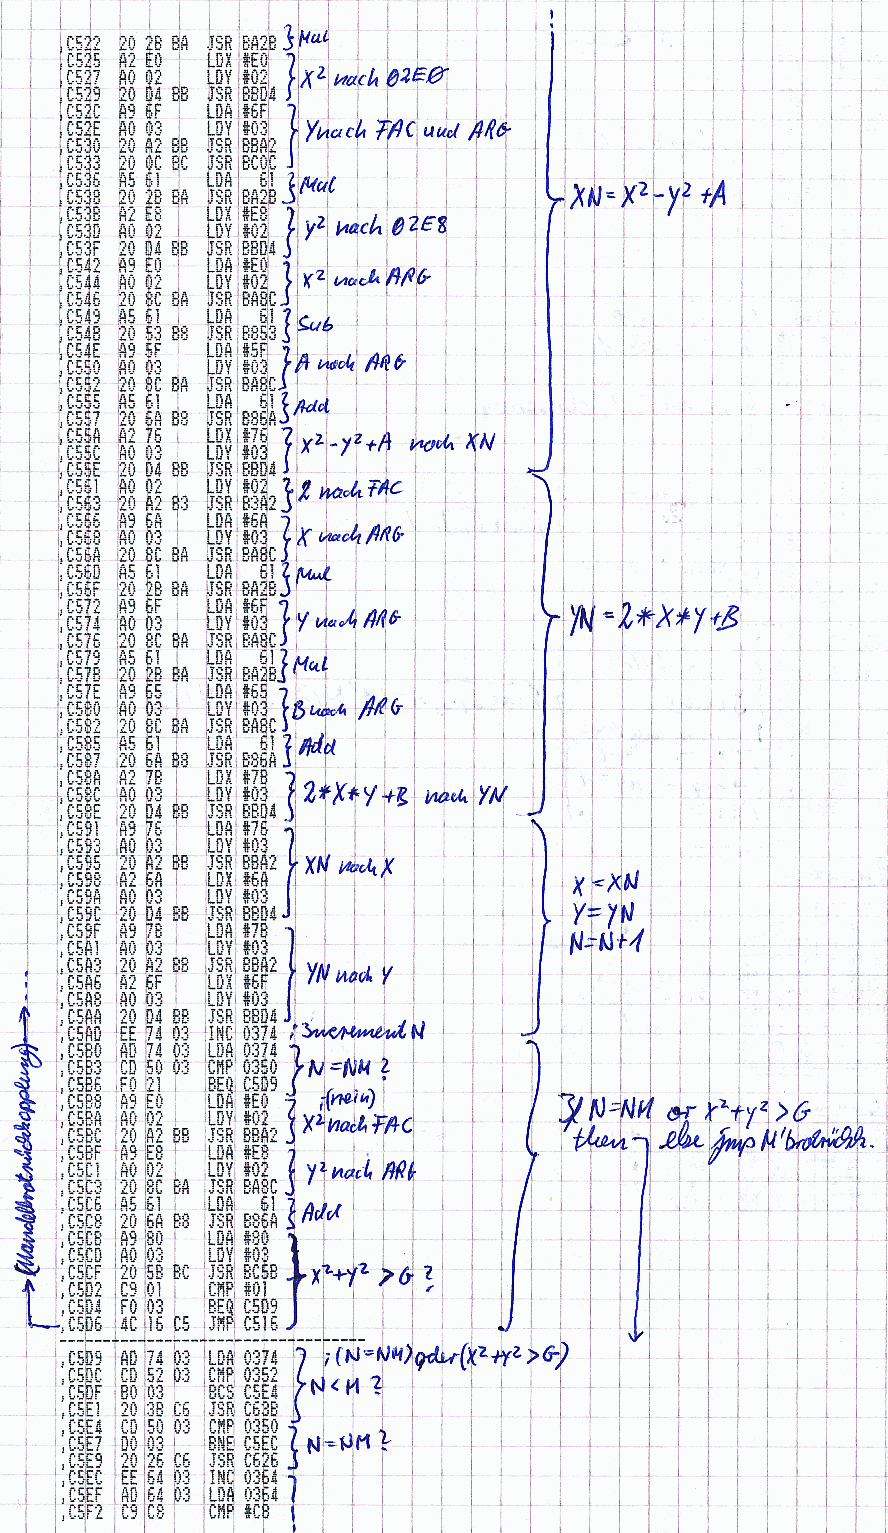 ,C522 20 2B BA JSR BA2B } Mul
,C525 A2 E0 LDX #E0
,C527 A0 02 LDY #02 X² nach 02E0
,C529 20 D4 BB JSR BBD4
,C52C A9 6F LDA #6F
,C52E A0 03 LDY #03 Y nach FAC und ARG
,C530 20 A2 BB JSR BBA2
,C533 20 0C BC JSR BC0C
,C536 A5 61 LDA 61 } Mul
,C538 20 2B BA JSR BA2B XN = X² - Y² + A
,C53B A2 E8 LDX #E8
,C53D A0 02 LDY #02 Y² nach 02E8
,C53F 20 D4 BB JSR BBD4
,C542 A9 E0 LDA #E0
,C544 A0 02 LDY #02 X² nach ARG
,C546 20 8C BA JSR BA8C
,C549 A5 61 LDA 61 } Sub
,C54B 20 53 B8 JSR B853
,C54E A9 5F LDA #5F
,C550 A0 03 LDY #03 A nach ARG
,C552 20 8C BA JSR BA8C
,C555 A5 61 LDA 61 } Add
,C557 20 6A B8 JSR B86A
,C55A A2 76 LDX #76
,C55C A0 03 LDY #03 X² - Y² + A nach XN
,C55E 20 D4 BB JSR BBD4
,C561 A0 02 LDY #02 2 nach FAC
,C563 20 A2 B3 JSR B3A2
,C566 A9 6A LDA #6A
,C568 A0 03 LDY #03 X nach ARG
,C56A 20 8C BA JSR BA8C
,C56D A5 61 LDA 61 } Mul
,C56F 20 2B BA JSR BA2B
,C572 A9 6F LDA #6F
,C574 A0 03 LDY #03 Y nach ARG YN = 2*X*Y+B
,C576 20 8C BA JSR BA8C
,C579 A5 61 LDA 61 } Mul
,C57B 20 2B BA JSR BA2B
,C57E A9 65 LDA #65
,C580 A0 03 LDY #03 B nach ARG
,C582 20 8C BA JSR BA8C
,C585 A5 61 LDA 61 } Add
,C587 20 6A B8 JSR B86A
,C58A A2 7B LDX #7B
,C58C A0 03 LDY #03 2*X*Y+B nach YN
,C58E 20 D4 BB JSR BBD4
,C591 A9 76 LDA #76
,C593 A0 03 LDY #03
,C595 20 A2 BB JSR BBA2 XN nach X
,C598 A2 6A LDX #6A X = XN
,C59A A0 03 LDY #03
,C59C 20 D4 BB JSR BBD4 Y = YN
,C59F A9 7B LDA #7B
,C5A1 A0 03 LDY #03 N = N+1
,C5A3 20 A2 BB JSR BBA2
,C5A6 A2 6F LDX #6F YN nach Y
,C5A8 A0 03 LDY #03
,C5AA 20 D4 BB JSR BBD4
,C5AD EE 74 03 INC 0374 ; Increment N
,C5B0 AD 74 03 LDA 0374
,C5B3 CD 50 03 CMP 0350 N = NM ?
,C5B6 F0 21 BEQ C5D9
,C5B8 A9 E0 LDA #E0 ; (nein)
,C5BA A0 02 LDY #02 X² nach FAC If N=NM or X²+Y² > G
,C5BC 20 A2 BB JSR BBA2
,C5BF A9 E8 LDA #E8 then else jmp M'brotrückk.
,C5C1 A0 02 LDY #02 Y² nach ARG
,C5C3 20 8C BA JSR BA8C
,C5C6 A5 61 LDA 61 } Add
,C5C8 20 6A B8 JSR B86A
,C5CB A9 80 LDA #80
,C5CD A0 03 LDY #03
,C5CF 20 5B BC JSR BC5B X²+Y² > G ?
,C5D2 C9 01 CMP #01
,C5D4 F0 03 BEQ C5D9
,C5D6 4C 16 C5 JMP C516
(Mandelbrotrückkopplung)
,C5D9 AD 74 03 LDA 0374 ; (N=NM) oder (X²+Y² > G)
,C5DC CD 52 03 CMP 0352
,C5DF B0 03 BCS C5E4 N < M ?
,C5E1 20 3B C6 JSR C63B
,C5E4 CD 50 03 CMP 0350
,C5E7 D0 03 BNE C5EC N = NM ?
,C5E9 20 26 C6 JSR C626
,C5EC EE 64 03 INC 0364
,C5EF AD 64 03 LDA 0364
,C5F2 C9 C8 CMP #C8